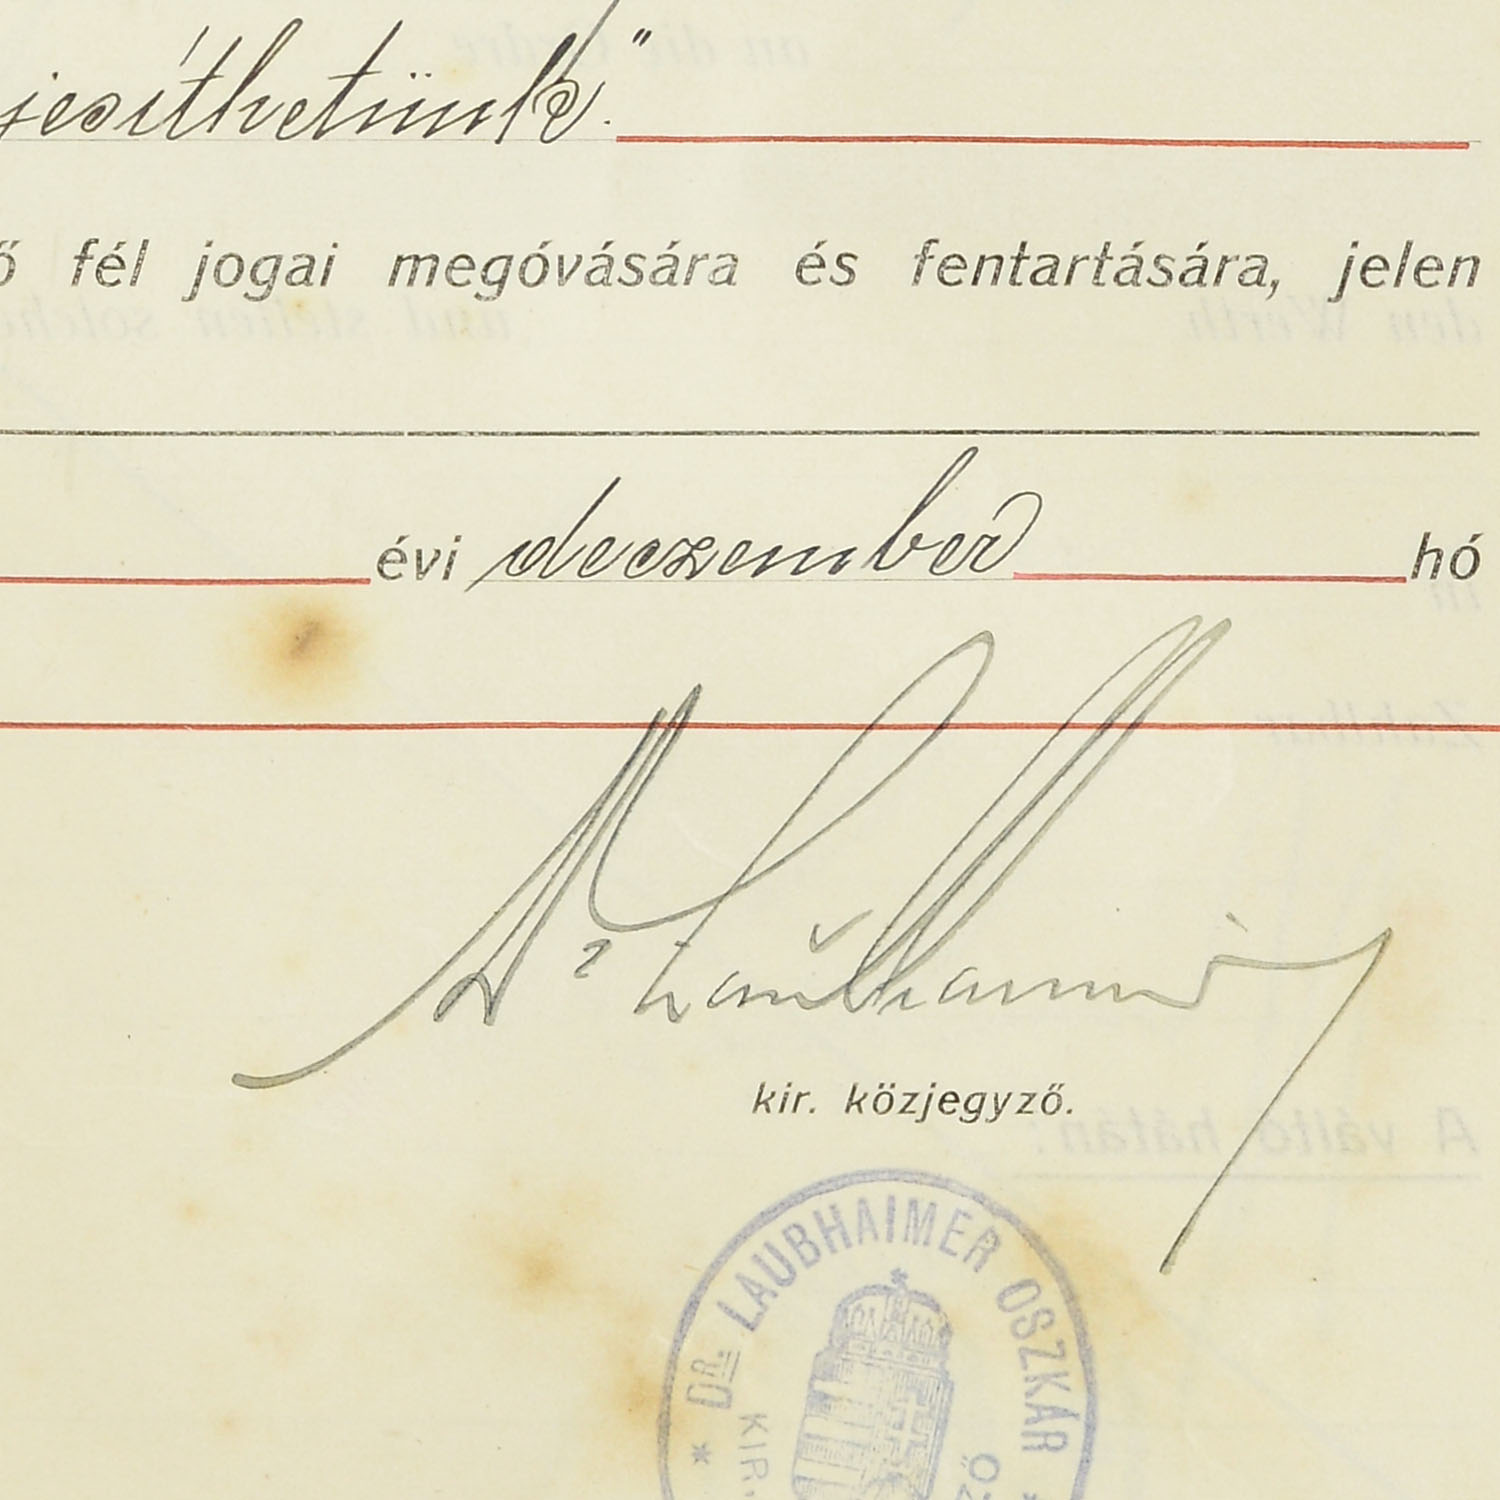 jesíthetünk."
ő fél jogai megóvására és fentartására, jelen
évi deczember hó
Dr Laubhaimer
kir. közjegyző.
* DR. LAUBHAIMER OSZKÁR *
KIR.